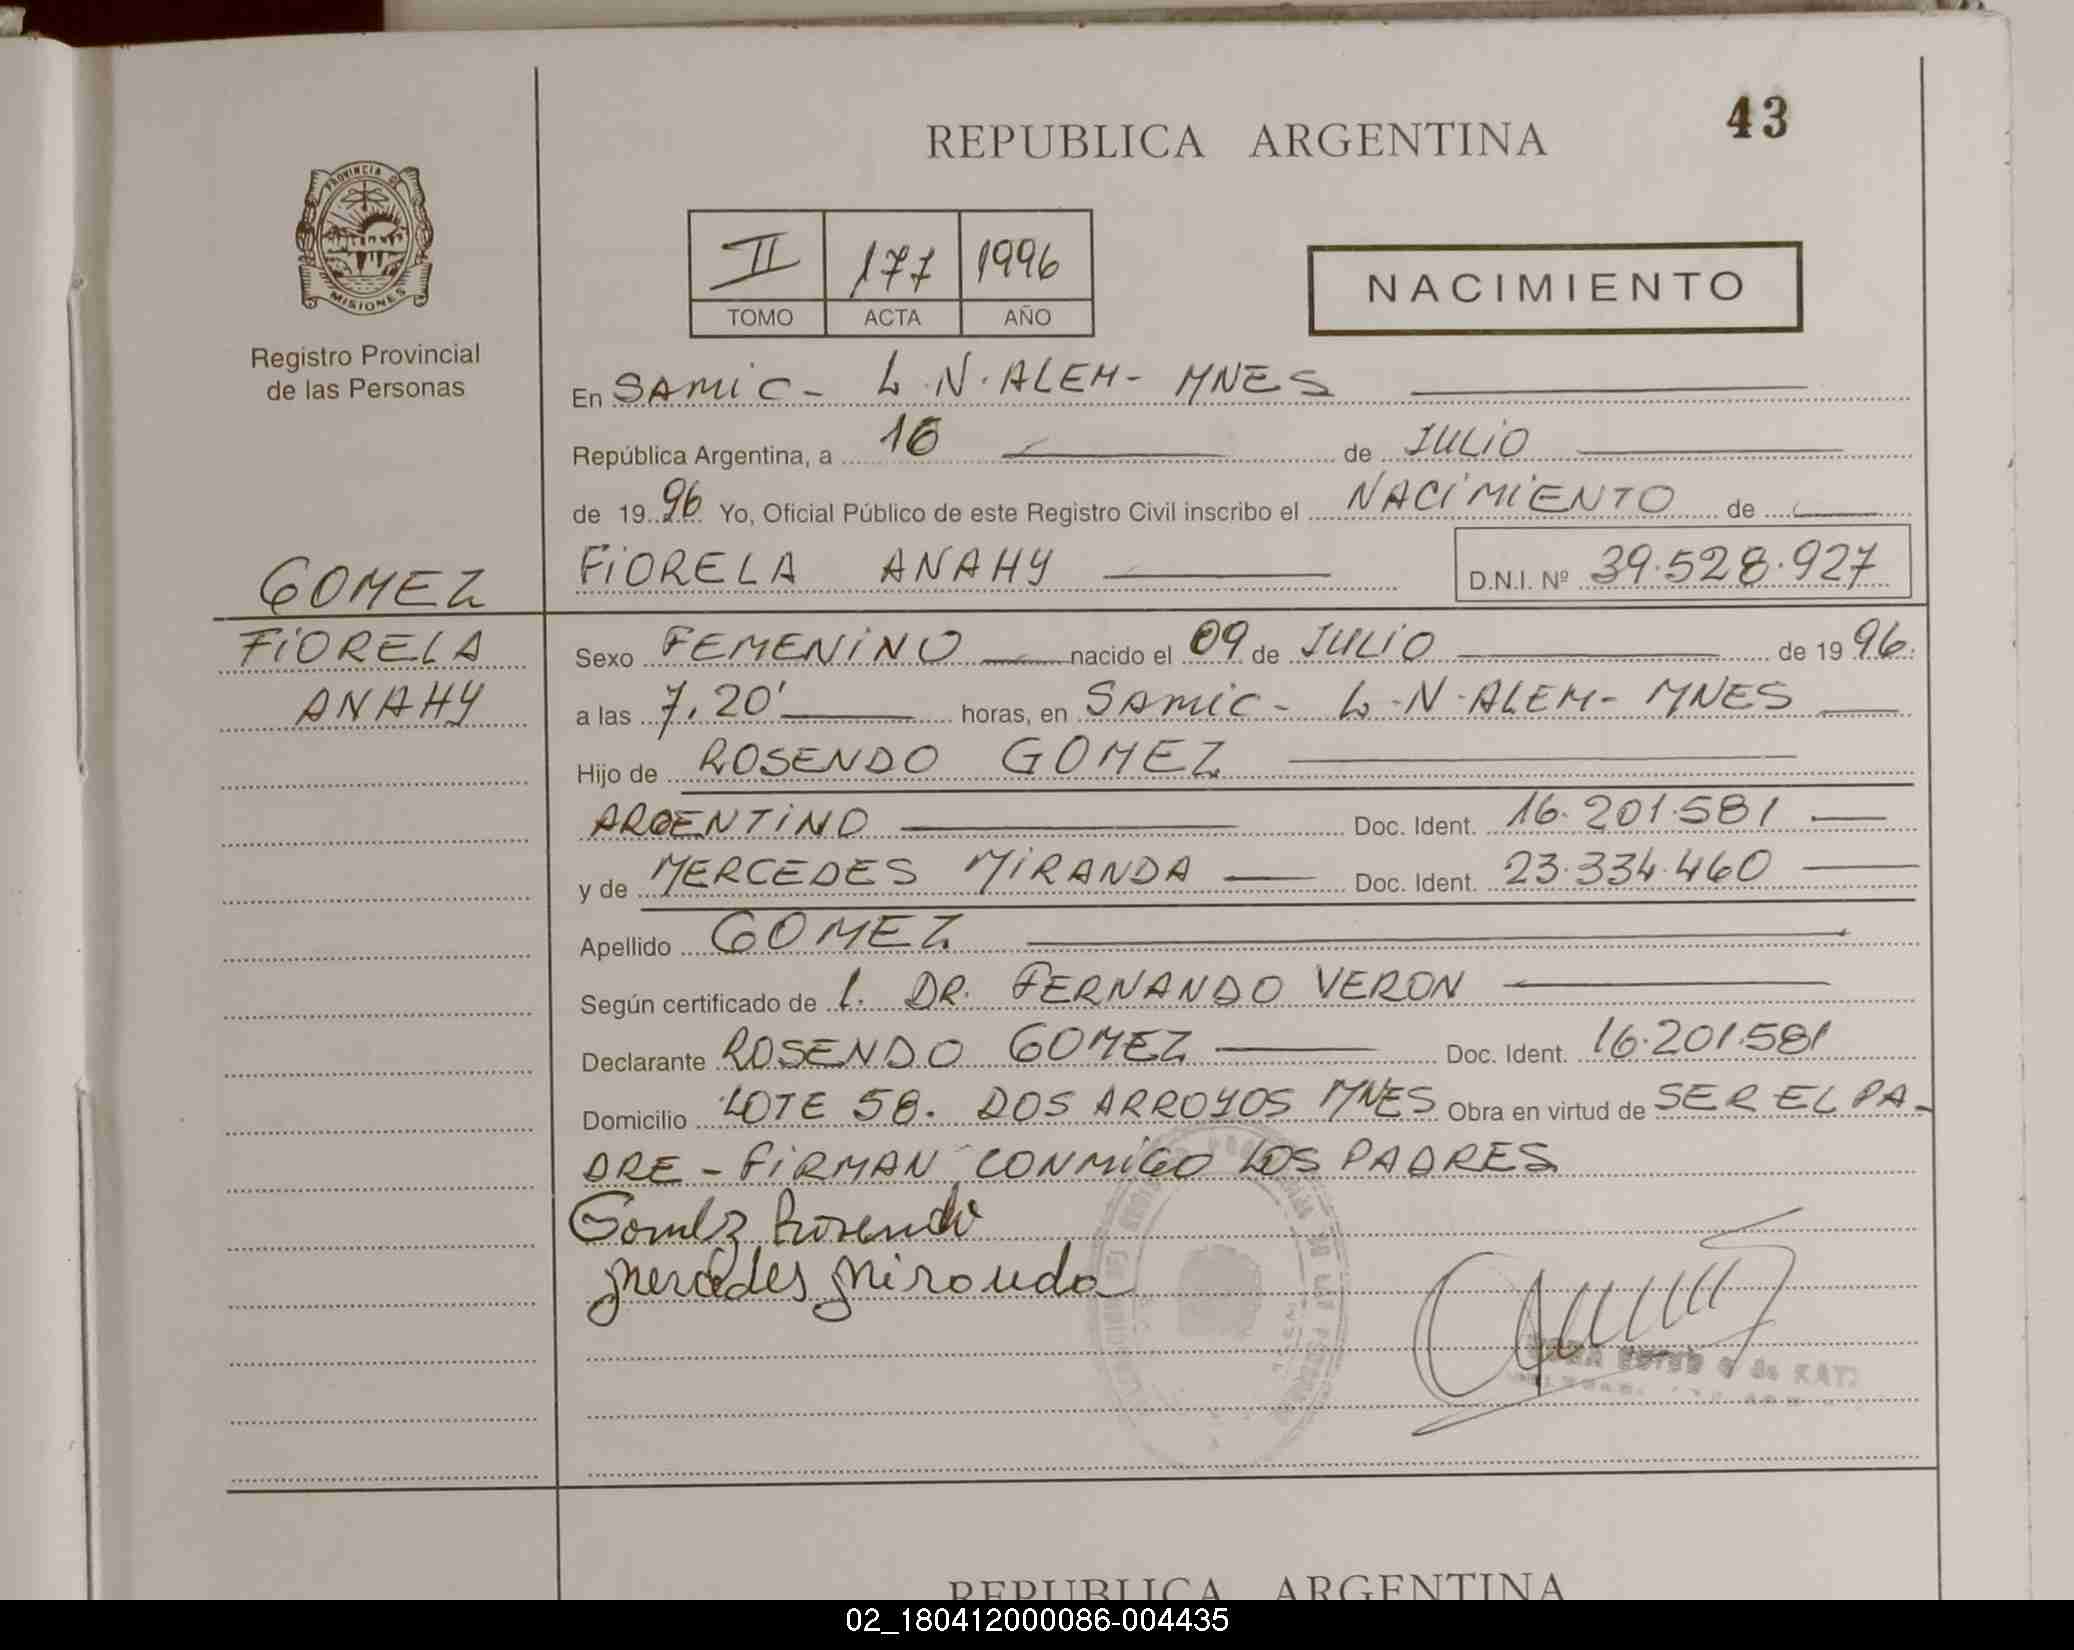 43
REPUBLICA ARGENTINA
PROVINCIA DE
MISIONES
Registro Provincial
de las Personas
II 177 1996
TOMO ACTA AÑO
NACIMIENTO
En SAMIC - L.N. ALEM - MNES
República Argentina, a 16 de JULIO
de 1996 Yo, Oficial Público de este Registro Civil inscribo el NACIMIENTO de
FIORELA ANAHY D.N.I. Nº 39.528.927
GOMEZ
FIORELA
ANAHY
Sexo FEMENINO nacido el 09 de JULIO de 1996.
a las 7,20' horas, en SAMIC - L.N. ALEM - MNES
Hijo de ROSENDO GOMEZ
ARGENTINO Doc. Ident. 16.201.581
y de MERCEDES MIRANDA Doc. Ident. 23.334.460
Apellido GOMEZ
Según certificado de l. DR. FERNANDO VERON
Declarante ROSENDO GOMEZ Doc. Ident. 16.201.581
Domicilio LOTE 58. DOS ARROYOS MNES Obra en virtud de SER EL PA-
DRE - FIRMAN CONMIGO LOS PADRES
Gomez Rosendo
Mercedes Miranda
REPUBLICA ARGENTINA
02_180412000086-004435